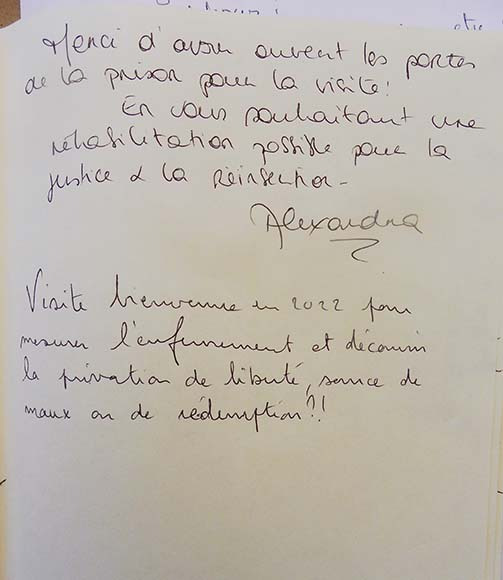 Merci d'avoir ouvert les portes
de la prison pour la visite!
En vous souhaitant une
réhabilitation possible pour la
justice & la réinsertion -
Alexandra
Visite bienvenue en 2022 pour
mesurer l'enfermement et découvrir
la privation de liberté, source de
maux ou de rédemption?!